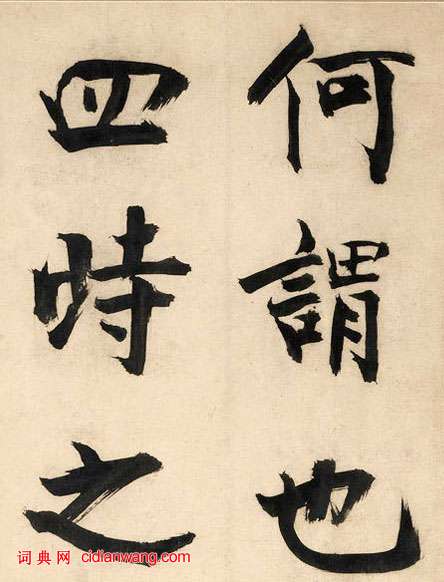 何謂也
四時之
词典网 cidianwang.com